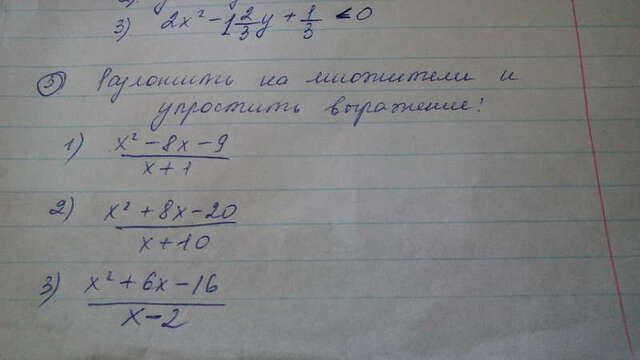 3) 2x² - 1 2/3 y + 1/3 < 0
5) Разложить на множители и
упростить выражение:
1) (x² - 8x - 9) / (x + 1)
2) (x² + 8x - 20) / (x + 10)
3) (x² + 6x - 16) / (x - 2)